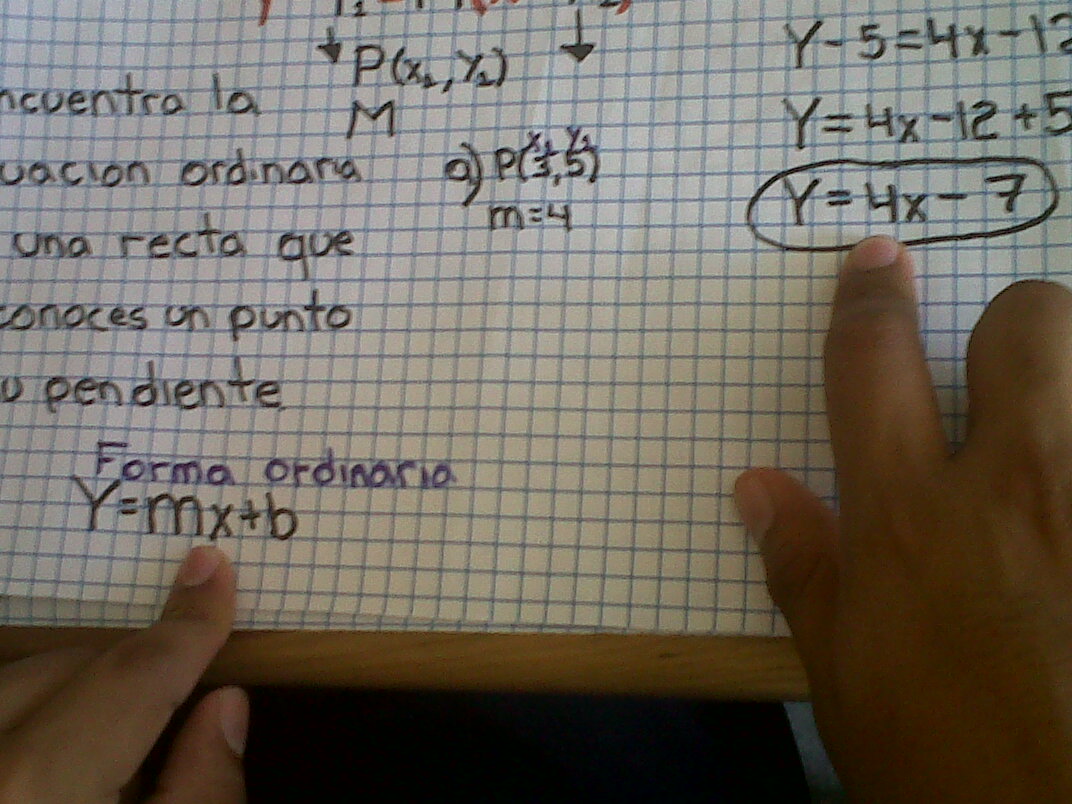 P(x₁,y₁)
M
ncuentra la
uacion ordinaria
una recta que
conoces un punto
u pendiente
Forma ordinaria
Y=mx+b
a) P(3,5)
x₁ y₁
m=4
Y-5=4x-12
Y=4x-12+5
Y=4x-7